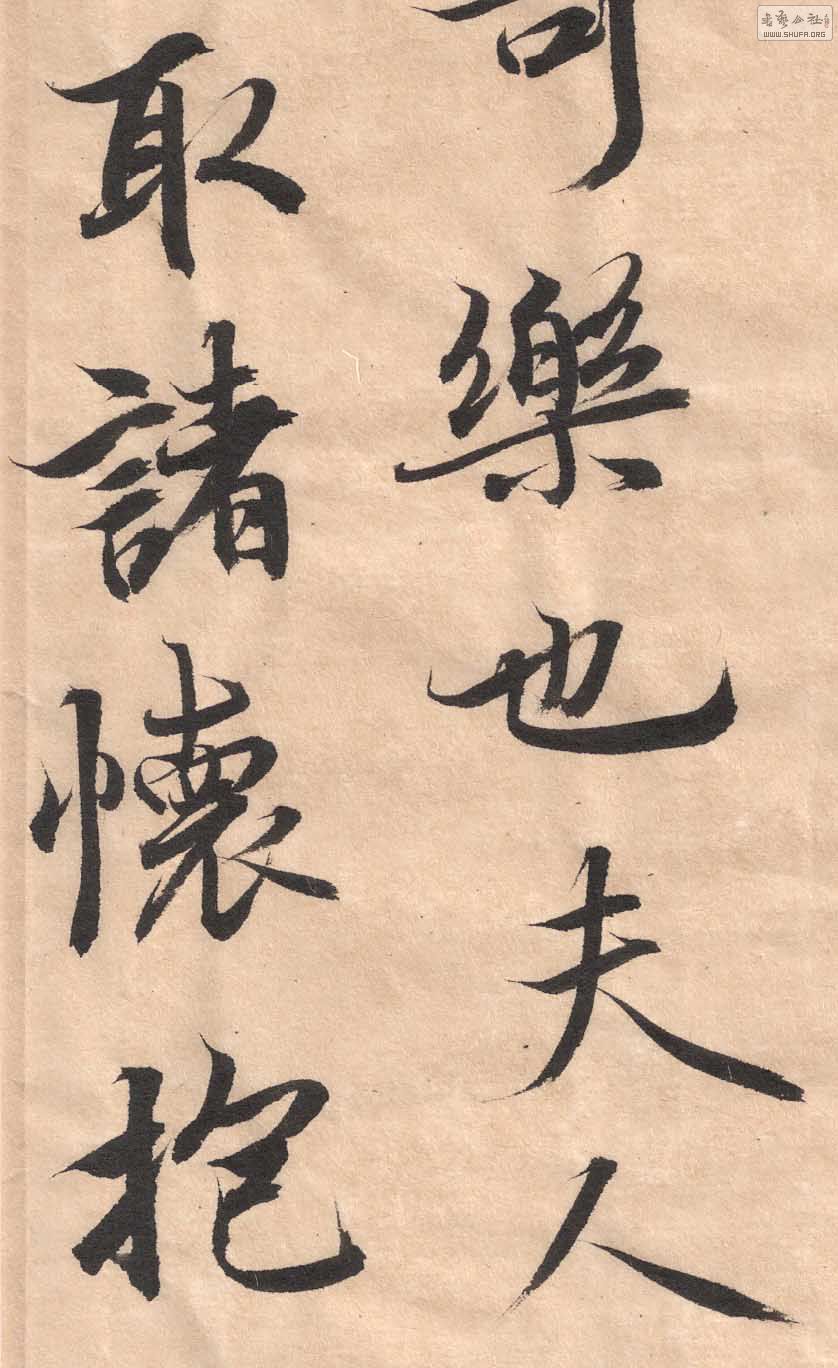 可樂也夫人
取諸懷抱
書藝公社
WWW.SHUFA.ORG